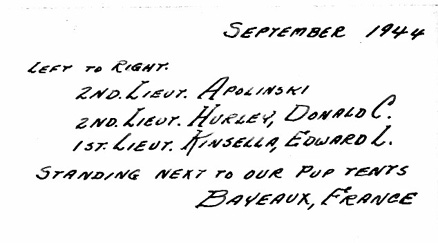 SEPTEMBER 1944
LEFT TO RIGHT.
2ND. LIEUT. APOLINSKI
2ND. LIEUT. HURLEY, DONALD C.
1ST. LIEUT. KINSELLA, EDWARD L.
STANDING NEXT TO OUR PUP TENTS
BAYEAUX, FRANCE